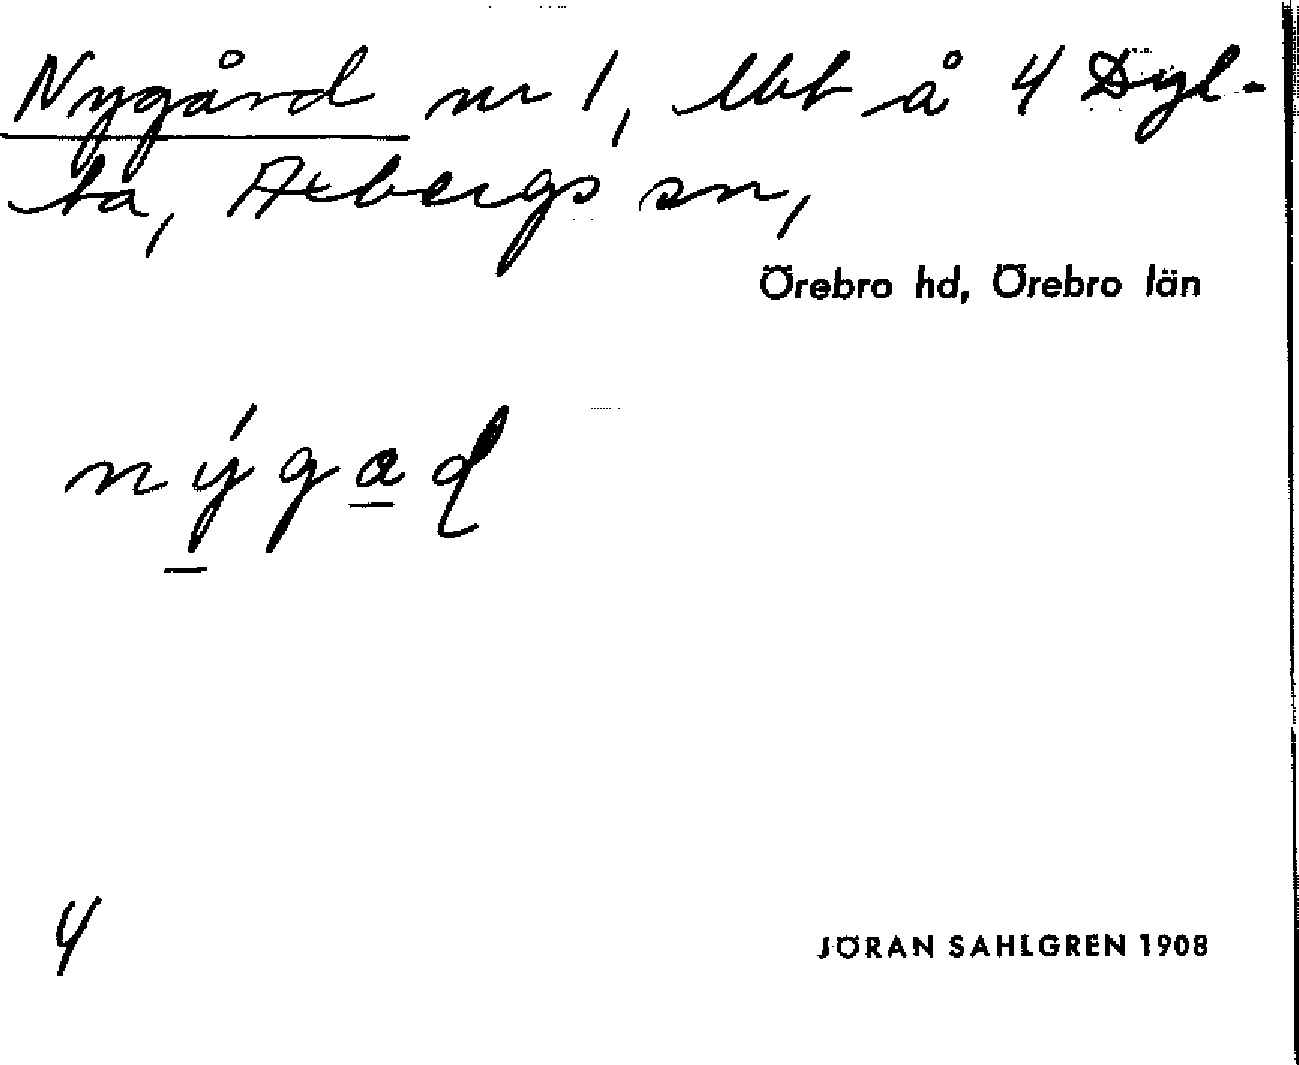 Nygård nr 1, lht å 4 Dyl-
ta, Axbergs sn,
Örebro hd, Örebro län
nýgad
4
JÖRAN SAHLGREN 1908